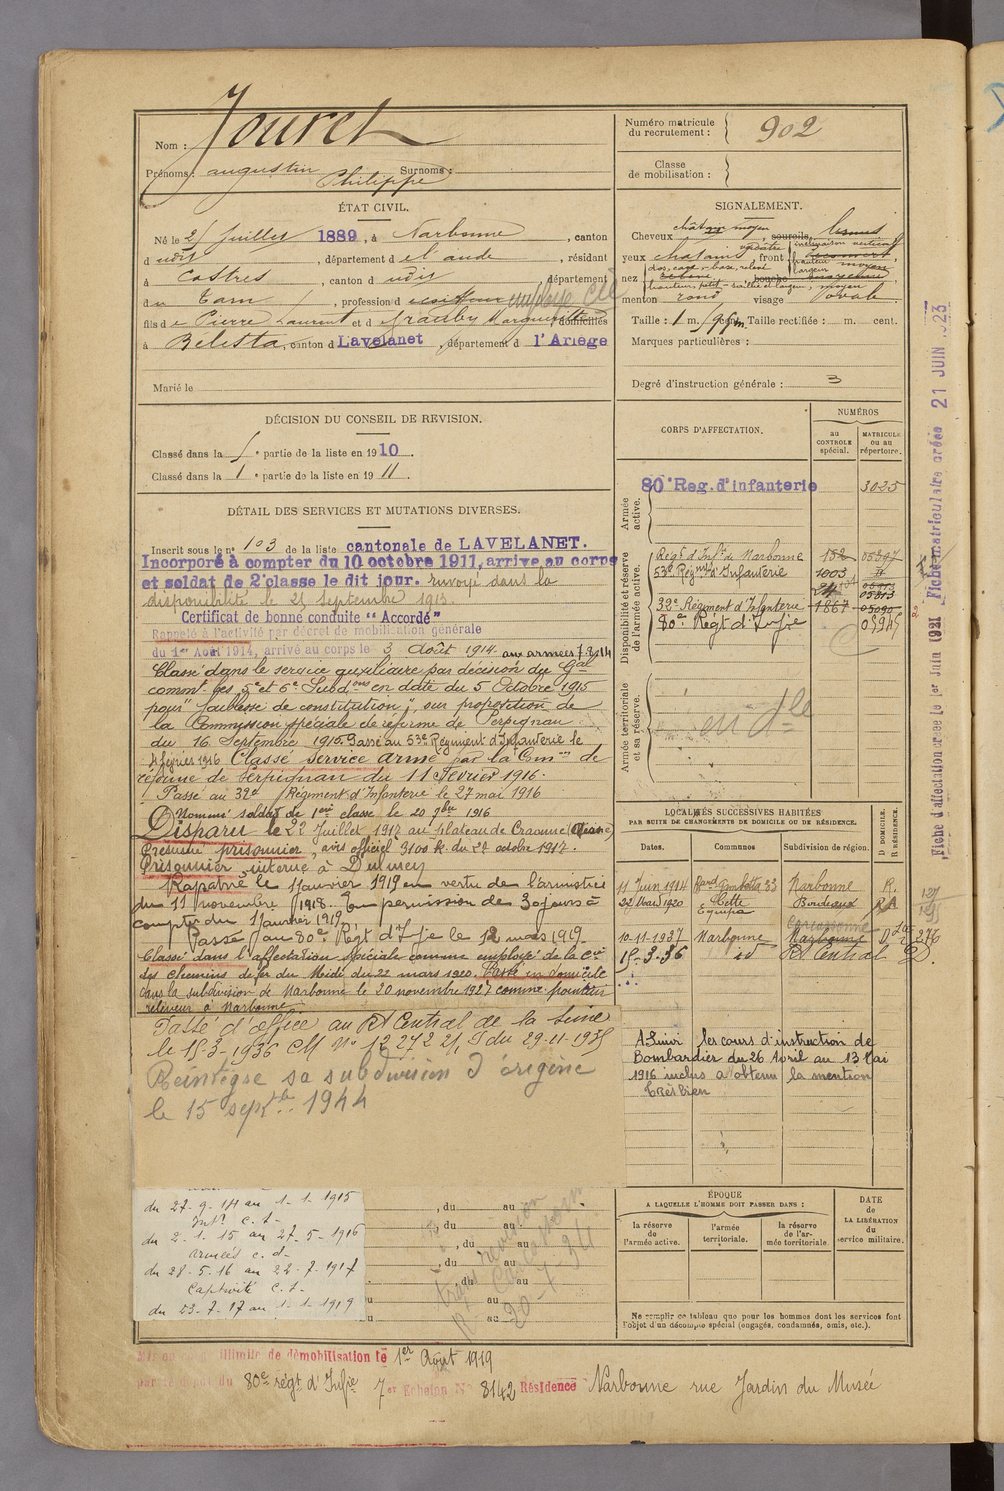 Nom : Jouret
Prénoms : augustin Philippe Surnoms :
ÉTAT CIVIL.
Né le 25 juillet 1889, à Narbonne, canton
dudit, département de l'aude, résidant
à Castres, canton dudit, département
du Tarn, profession de coiffeur employé
fils de Pierre Laurent et d Marguerite domiciliés
à Belesta, canton d Lavelanet, département d l'Ariège
Marié le
DÉCISION DU CONSEIL DE REVISION.
Classé dans la 5e partie de la liste en 1910.
Classé dans la 1e partie de la liste en 1911.
DÉTAIL DES SERVICES ET MUTATIONS DIVERSES.
Inscrit sous le n° 103 de la liste cantonale de LAVELANET.
Incorporé à compter du 10 octobre 1911, arrive au corps
et soldat de 2e classe le dit jour. renvoyé dans la
disponibilité le 25 Septembre 1913.
Certificat de bonne conduite "Accordé"
Rappelé à l'activité par décret de mobilisation générale
du 1er Août 1914, arrivé au corps le 3 Août 1914 aux armées
Classé dans le service auxiliaire par décision du Gal
commt les 5e et 6e Subdons en date du 5 Octobre 1915
pour "faiblesse de constitution", sur proposition de
la Commission spéciale de réforme de Perpignan
du 16 Septembre 1915. Passé au 53e Régiment d'Infanterie le
février 1916 Classé service armé par la Comon de
réforme de Perpignan du 11 février 1916.
Passé au 32e Régiment d'Infanterie le 27 mai 1916
Nommé soldat de 1ère classe le 20 9bre 1916
Disparu le 22 Juillet 1917 au plateau de Craonne (Aisne)
Présumé prisonnier, avis officiel 3100 K. du 27 octobre 1917.
Prisonnier interné à Dulmen
Rapatrié le 1 Janvier 1919 en vertu de l'armistice
du 11 novembre 1918. En permission de 30 jours à
compter du 1 Janvier 1919
Passé au 80e Régt d'Ifie le 12 mars 1919
Classé dans l'affectation spéciale comme employé de la Cie
des chemins de fer du Midi du 22 mars 1920. Passé en domicile
dans la subdivision de Narbonne le 20 novembre 1927 comme pointeur
releveur à Narbonne
Passé d'office au RT Central de la Seine
le 15-3-1936 CM N° du 29-11-1935
Réintègre sa subdivision d'origine
le 15 septbre 1944
du 27-9-14 au 1-1-1915
Intr C. S-
du 2-1-15 au 27-5-1916
Armées C. d-
du 28-5-16 au 22-7-1917
Captivité C. S-
du 23-7-17 au 1-1-1919
, du au
, du au
, du au
, du au
, du au
au
au
Numéro matricule du recrutement : 902
Classe de mobilisation :
SIGNALEMENT.
Cheveux châtain moyen sourcils
yeux châtains verdâtre front inclinaison verticale hauteur largeur moyen
nez dos, cave - base, relevé bouche moyenne
menton rond visage ovale
Taille : 1 m. cent. Taille rectifiée : m. cent.
Marques particulières :
Degré d'instruction générale : 3
CORPS D'AFFECTATION.
NUMÉROS
au CONTROLE spécial.
MATRICULE ou au répertoire.
Armée active.
80e Reg. d'infanterie 3025
Disponibilité et réserve de l'armée active.
Régt d'Infie de Narbonne 152 05397
53e Régimt d'Infanterie 1003
05813
32e Régiment d'Infanterie 1867 05090
80e Régt d'Infie 05945
Armée territoriale et sa réserve.
LOCALITÉS SUCCESSIVES HABITÉES
PAR SUITE DE CHANGEMENTS DE DOMICILE OU DE RÉSIDENCE.
Dates. Communes Subdivision de région. D DOMICILE. R RÉSIDENCE.
11 Juin 1914 Bard Gambetta 33 Narbonne R.
22 Mars 1920 Cette Bordeaux
Carcassonne
10-11-1937 Narbonne Narbonne D
15-3-36 id RT Central
A Suivi les cours d'instruction de
Bombardier du 26 Avril au 13 Mai
1916 inclus a obtenu la mention
très bien
ÉPOQUE
A LAQUELLE L'HOMME DOIT PASSER DANS :
la réserve de l'armée active.
l'armée territoriale.
la réserve de l'armée territoriale.
DATE de LA LIBÉRATION du service militaire.
Ne remplir ce tableau que pour les hommes dont les services font
l'objet d'un décompte spécial (engagés, condamnés, omis, etc.).
Fiche d'affectation créée le 1er Juin 1921 Fiche matriculaire créée 21 JUIN 1923
illimité de démobilisation le 1er Août 1919
dépôt du 80e régt d'Infie 7er Echelon N° 8142 Résidence Narbonne rue Jardin du Musée